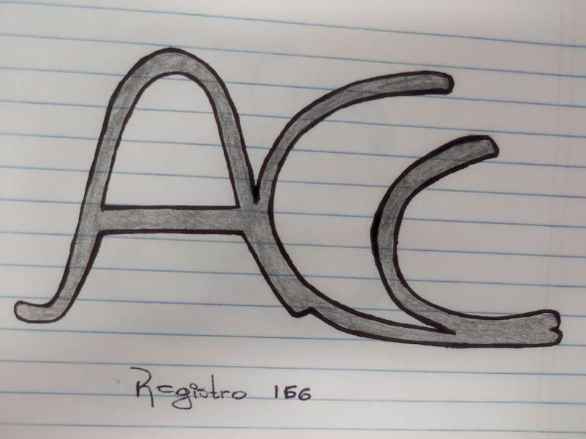 ACC
Registro 156